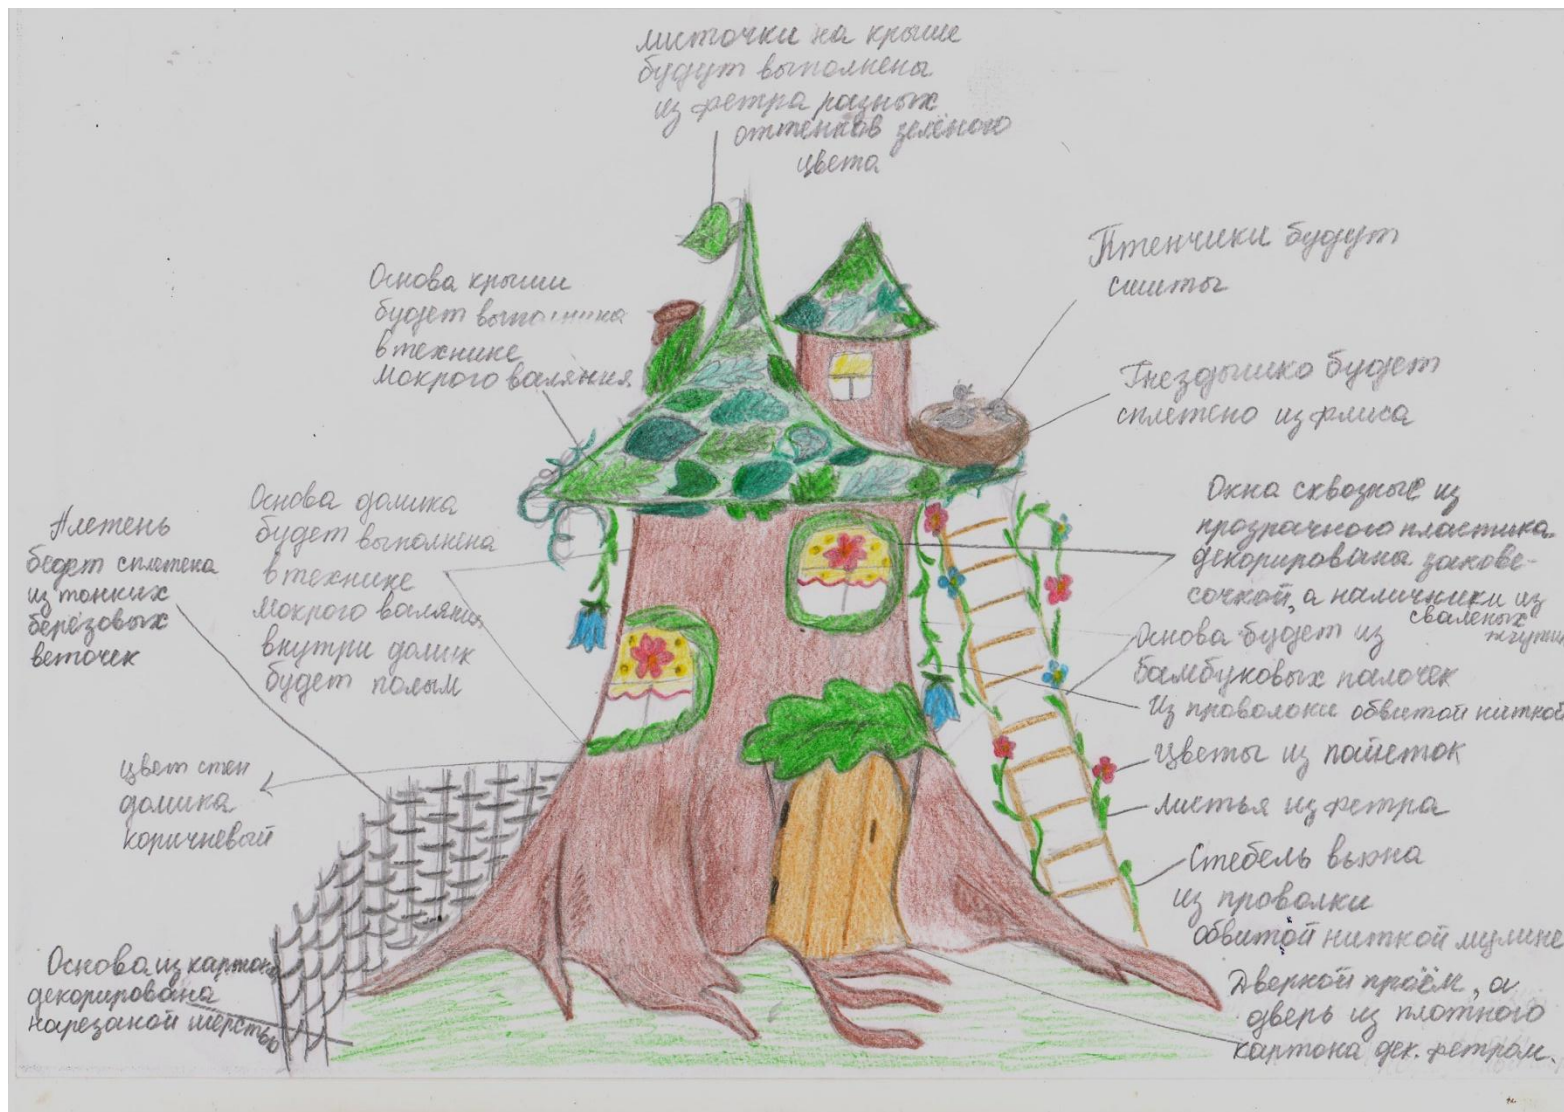 листочки на крыше
будут выполнены
из фетра разных
оттенков зелёного
цвета
Основа крыши
будет выполнина
в технике
мокрого валяния
Птенчики будут
сшиты
Гнездышко будет
сплетено из флиса
Основа домика
будет выполнена
в технике
мокрого валяния
внутри домик
будет полым
Плетень
бедет сплетена
из тонких
берёзовых
веточек
цвет стен
домика
коричневый
Основа из картона
декорирована
нарезаной шерстью
Окна сквозные из
прозрачного пластика
декорирована занове-
сочкой, а наличники из
сваленых
жгутик
Основа будет из
бамбуковых палочек
Из проволоки обвитой ниткой
цветы из пайеток
листья из фетра
Стебель вьюна
из проволки
обвитой ниткой мулине
Дверной проём, а
дверь из плотного
картона дек. фетром.